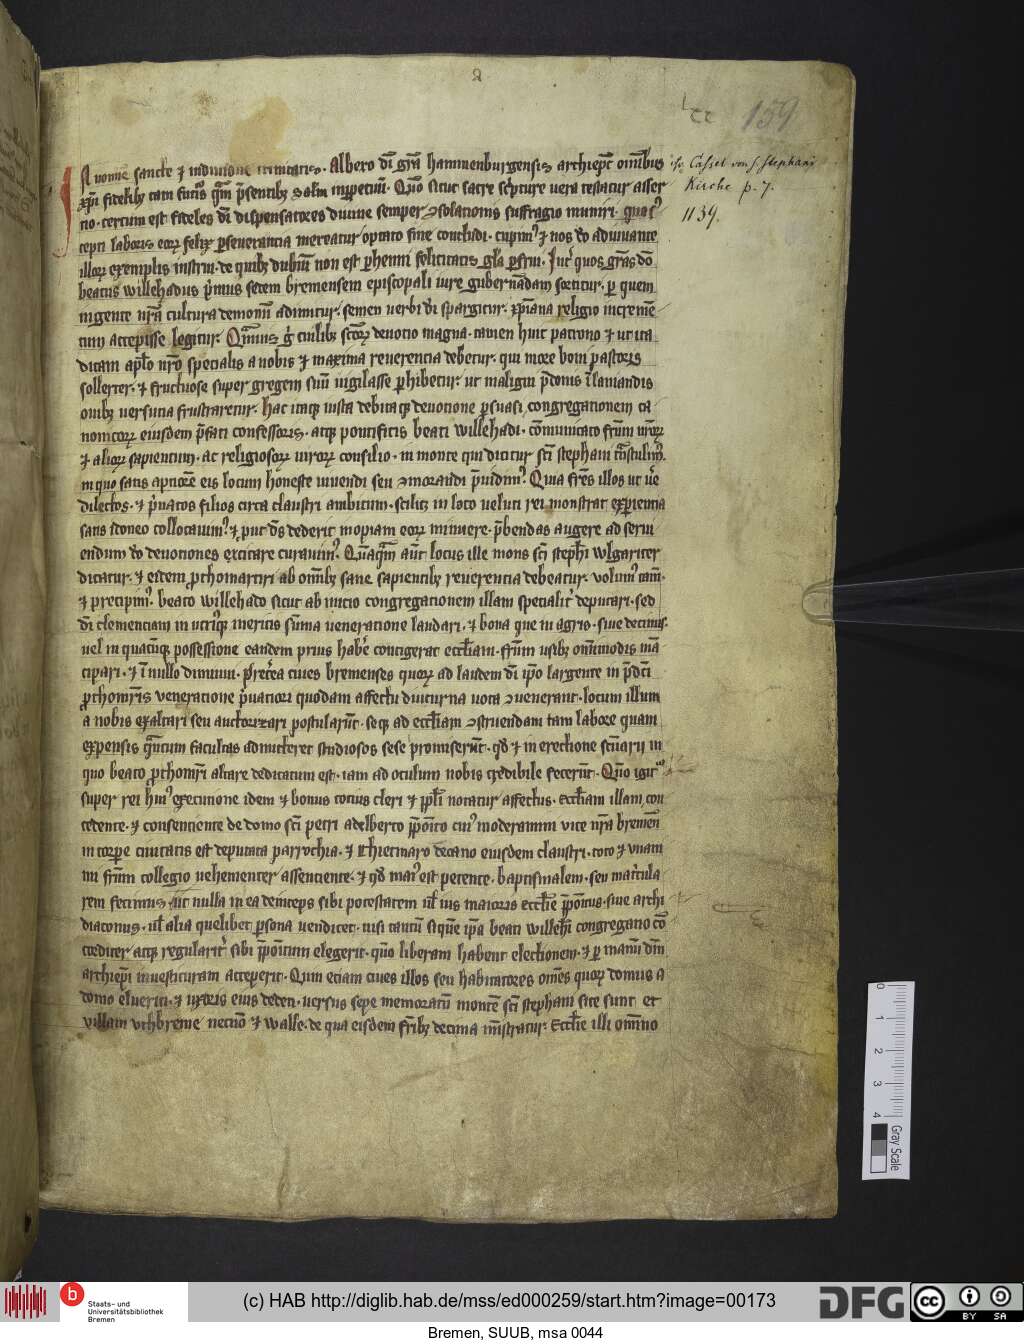 a
159
In nomine sancte ⁊ individue trinitatis. Albero dī grā hammenburgensis archiep̄c omībus
xp̄i fidelibȝ tam futur̄ q̄m p̄sentibȝ salm̄ in pp̄etuū. Qm̄ sicut sacre scripture vera testatur asser
tio. certum est fideles dī dispensatores divine semper ꝯsolationis suffragio muniri. quos ꝰ
cepti laboris eoꝝ felix p̄severancia mereatur optato fine concludi. cupimꝰ ⁊ nos deo adiuvante
illoꝝ exemplis instrui. de quibȝ dubiū non est p̄henni felicitatis gl̄a p̄frui. Int̄ quos gr̄as deo
beatus willehadus p̄mus sedem bremensem episcopali iure gubernādam sortitur. per quem
ingente nr̄a cultura demonū adimitur. semen verbi dī spargitur. xp̄iana religio increme
tum accepisse legitur. Q̄mvis ḡ cuilibȝ sc̄oꝝ devotio magna. tamen huic patrono ⁊ ut ita
dicam ap̄lo nr̄o specialis a nobis ⁊ maxima reverencia debetur. qui more boni pastoris
sollerter. ⁊ fructuose super gregem suū vigilasse p̄hibetur. ut maligni p̄donis īlaniandis
ovibȝ versucia frustraretur. hac itaqȝ iusta debitaqȝ devotione p̄suasi congregationem ca
nonicoꝝ eiusdem p̄fati confessoris. atqȝ pontificis beati willehadi. cōmunicato fr̄um nr̄oꝝ
⁊ alioꝝ sapientium. ac religiosoꝝ viroꝝ consilio. in monte qui dicitur sc̄i stephani
in quo satis apciorē eis locum honeste vivendi seu ꝯmorandi p̄vidimꝰ. Quia fr̄es illos ut
dilectos. ⁊ p̄vatos filios circa claustri ambitum. scilicȝ in loco veluti rei monstrat experiencia
satis idoneo collocavimꝰ. ⁊ put dn̄s dederit inopiam eoꝝ minuere. p̄bendas augere ad servi
endum deo devotiones excitare curavimꝰ. Q̄mq̄m aūt locus ille mons sc̄i stephi wlgariter
dicatur. ⁊ eidem prothomartiri ab omībȝ sane sapientibȝ reverencia debeatur. volumꝰ tam̄.
⁊ precipimꝰ. beato willehado sicut ab inicio congregacionem illam specialit̄ deputari. sed
dī clemenciam in utriusqȝ meritis sūma veneratione laudari. ⁊ bona que in agris. sive decimis.
vel in quacūqȝ possessione eandem prius hab̄e contigerat eccl̄iam. fr̄um usibȝ omīmodis mā
cipari. ⁊ ī nullo diminui. Pret̄ea cives bremenses quoꝝ ad laudem dī ip̄o largente in p̄dc̄i
prothom̄ris veneratione p̄vaciori quodam affectu diuturna vota ꝯvenerant. locum illum
a nobis exaltari seu auctorizari postularūt. seqȝ ad eccl̄iam ꝯstruendam tam labore quam
expensis q̄ntum facultas admitteret studiosos sese promiserūt. qd̄ ⁊ in erectione sc̄uarii in
quo beato prothom̄ri altare dedicatum est. iam ad oculum nobis credibile fecerūt. Qm̄ igitꝰ
super rei huiꝰ execucione idem ⁊ bonus tocius cleri ⁊ pp̄li notatur affectus. Eccl̄iam illam con
cedente. ⁊ consenciente de domo sc̄i petri adelberto pp̄oīto cuiꝰ moderamini vice nr̄a bremen̄
in corpore civitatis est deputata parrochia. ⁊ Thietmaro decano eiusdem claustri. toto ⁊ unani
mi fr̄um collegio vehementer assenciente. ⁊ qd̄ maiꝰ est petente. baptismalem. seu matricula
rem fecimus. Ut nulla in ea deinceps sibi potestatem vel ius maioris eccl̄ie pp̄oītus. sive archi
diaconus. vel alia quelibet p̄sona vendicet. nisi tantū siquē ip̄a beati willehi congregatio cō
corditer atqȝ regularit̄ sibi pp̄oītum elegerit. quō liberam habent electionem. ⁊ per manū dn̄i
archiep̄i investituram acceperit. Qum eciam cives illos seu habitatores om̄es quoꝝ domus a
domo elverici. ⁊ uxoris eius deden. versus sepe memoratū montē sc̄i stephani site sunt et
villam uthbreme necnō ⁊ walle. de qua eisdem fr̄ibȝ decima mīstratur. Eccl̄ie illi omīno
Cassel von S. Stephani
Kirche p. 7.
1139.
0
1
2
3
4
Gray Scale
b
Staats- und
Universitätsbibliothek
Bremen
(c) HAB http://diglib.hab.de/mss/ed000259/start.htm?image=00173
DFG
cc
BY SA
Bremen, SUUB, msa 0044